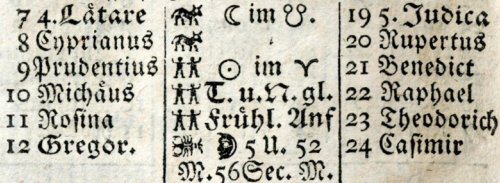 7 4. Lätare ☾ im ☋. 19 5. Judica
8 Cyprianus 20 Rupertus
9 Prudentius ☉ im ♈ 21 Benedict
10 Michäus T. u. N. gl. 22 Raphael
11 Rosina Frühl. Anf 23 Theodorich
12 Gregor. 5 U. 52 24 Casimir
M. 56 Sec. M.